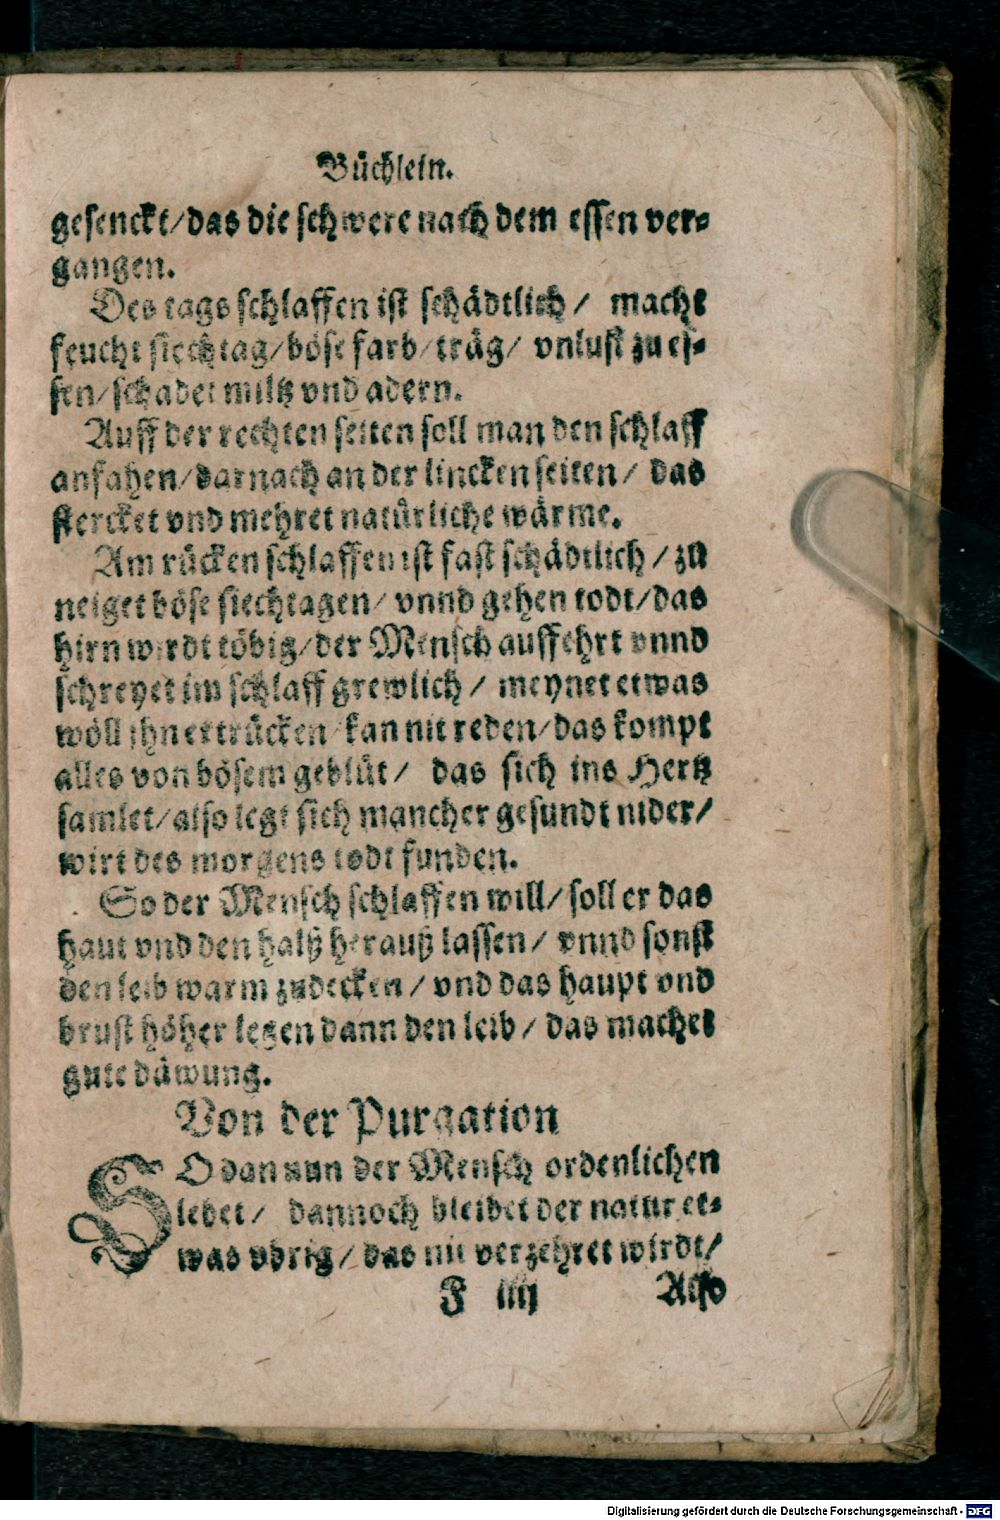 Büchlein.
gesenckt/das die schwere nach dem essen ver-
gangen.
Des tags schlaffen ist schädtlich/ macht
feucht siechtag/böse farb/träg/ vnlust zu es-
sen/schadet miltz vnd adern.
Auff der rechten seiten soll man den schlaff
anfahen/darnach an der lincken seiten/ das
stercket vnd mehret natürliche wärme.
Am rücken schlaffen ist fast schädtlich/zu
neiget böse siechtagen/ vnnd gehen todt/das
hirn wirdt töbig/der Mensch auffehrt vnnd
schreyet im schlaff grewlich/ meynet etwas
wöll ihn ertrücken/kan nit reden/das kompt
alles von bösem geblüt/ das sich ins Hertz
samlet/also legt sich mancher gesundt nider/
wirt des morgens todt funden.
So der Mensch schlaffen will/soll er das
haut vnd den halß herauß lassen/ vnnd sonst
den leib warm zudecken/vnd das haupt vnd
brust höher legen dann den leib/ das machet
gute däwung.
Von der Purgation
SO dan nun der Mensch ordenlichen
lebet/ dannoch bleibet der natur et-
was vbrig/das nit verzehret wirdt/
F iiij Also
Digitalisierung gefördert durch die Deutsche Forschungsgemeinschaft - DFG